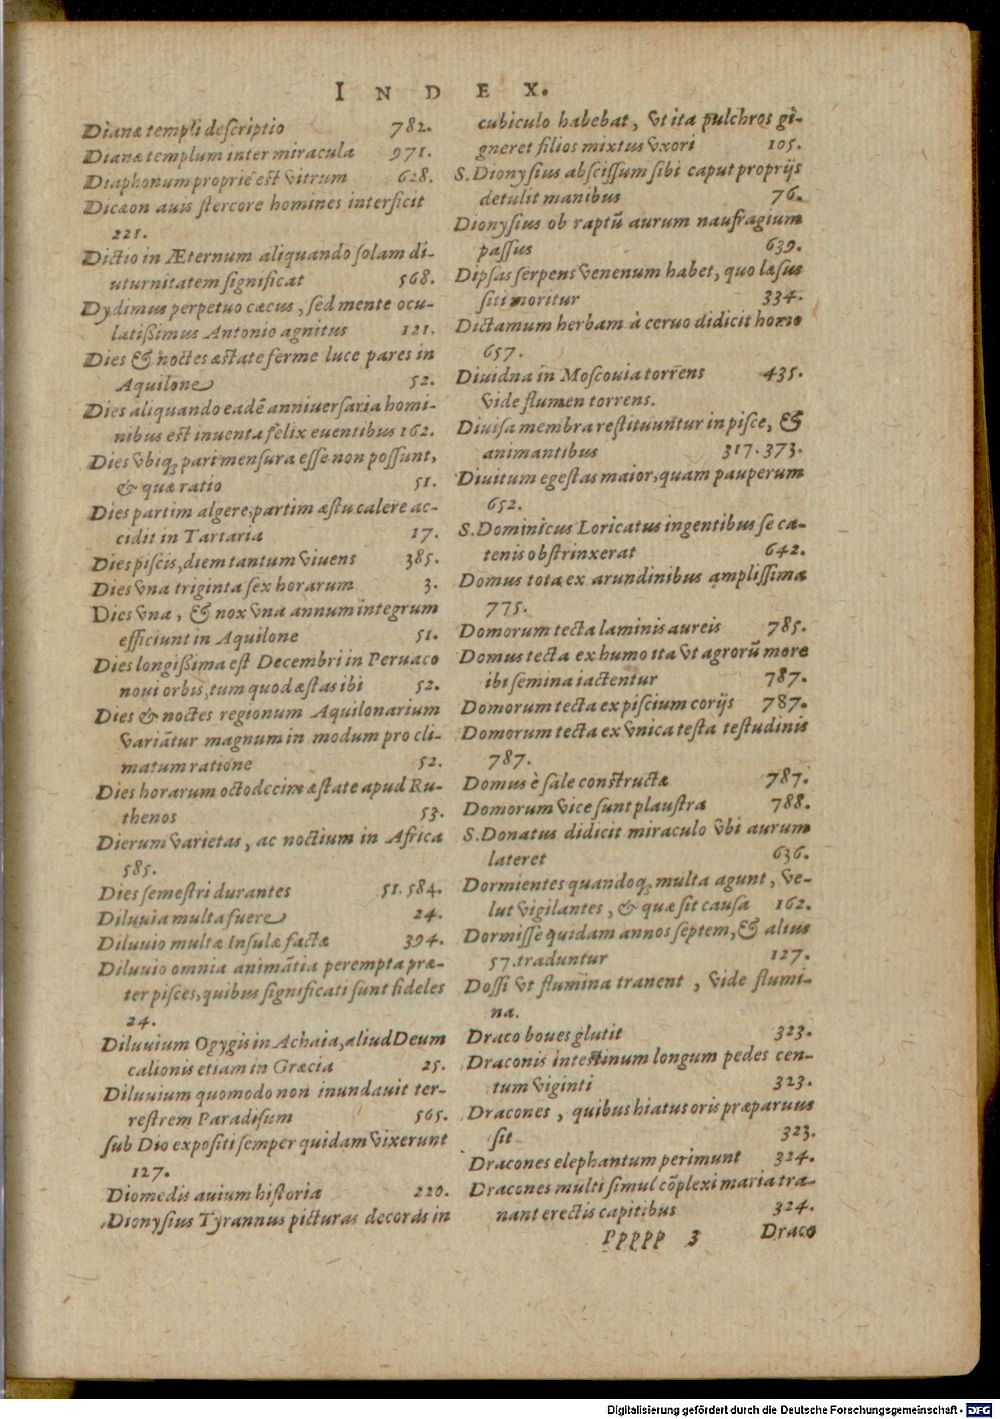 INDEX.
Dianæ templi descriptio 782.
Dianæ templum inter miracula 971.
Diaphonum propriè est vitrum 628.
Dicæon auis stercore homines interficit
221.
Dictio in Æternum aliquando solam di-
uturnitatem significat 568.
Dydimus perpetuo cæcus, sed mente ocu-
latißimus Antonio agnitus 121.
Dies & noctes æstate ferme luce pares in
Aquilone 52.
Dies aliquando eadē anniuersaria homi-
nibus est inuenta felix euentibus 162.
Dies vbiq; pari mensura esse non possunt,
& quæ ratio 51.
Dies partim algere, partim æstu calere ac-
cidit in Tartaria 17.
Dies piscis, diem tantum viuens 385.
Dies vna triginta sex horarum 3.
Dies vna, & nox vna annum integrum
efficiunt in Aquilone 51.
Dies longißima est Decembri in Peruaco
noui orbis, tum quod æstas ibi 52.
Dies & noctes regionum Aquilonarium
variātur magnum in modum pro cli-
matum ratione 52.
Dies horarum octodecim æstate apud Ru-
thenos 53.
Dierum varietas, ac noctium in Africa
585.
Dies semestri durantes 51. 584.
Diluuia multa fuere 24.
Diluuio multæ Insulæ factæ 394.
Diluuio omnia animātia perempta præ-
ter pisces, quibus significati sunt fideles
24.
Diluuium Ogygis in Achaia, aliud Deum
calionis etiam in Græcia 25.
Diluuium quomodo non inundauit ter-
restrem Paradisum 565.
sub Dio expositi semper quidam vixerunt
127.
Diomedis auium historia 220.
Dionysius Tyrannus picturas decoras in
cubiculo habebat, vt ita pulchros gi-
gneret filios mixtus vxori 105.
S. Dionysius abscissum sibi caput proprijs
detulit manibus 76.
Dionysius ob raptū aurum naufragium
passus 639.
Dipsas serpens venenum habet, quo læsus
siti moritur 334.
Dictamum herbam à ceruo didicit homo
657.
Diuidna in Moscouia torrens 435.
vide flumen torrens.
Diuisa membra restituuntur in pisce, &
animantibus 317. 373.
Diuitum egestas maior, quam pauperum
652.
S. Dominicus Loricatus ingentibus se ca-
tenis obstrinxerat 642.
Domus tota ex arundinibus amplissima
775.
Domorum tecta laminis aureis 785.
Domus tecta ex humo ita vt agrorū more
ibi semina iactentur 787.
Domorum tecta ex piscium corijs 787.
Domorum tecta ex vnica testa testudinis
787.
Domus è sale constructæ 787.
Domorum vice sunt plaustra 788.
S. Donatus didicit miraculo vbi aurum
lateret 636.
Dormientes quandoq; multa agunt, ve-
lut vigilantes, & quæ sit causa 162.
Dormisse quidam annos septem, & alius
57. traduntur 127.
Dossi vt flumina tranent, vide flumi-
na.
Draco boues glutit 323.
Draconis intestinum longum pedes cen-
tum viginti 323.
Dracones, quibus hiatus oris præparuus
sit 323.
Dracones elephantum perimunt 324.
Dracones multi simul cōplexi maria tra-
nant erectis capitibus 324.
Ppppp 3 Draco
Digitalisierung gefördert durch die Deutsche Forschungsgemeinschaft - DFG